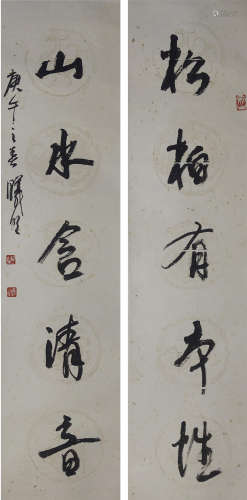 松柏有本性
山水含清音
庚午之春